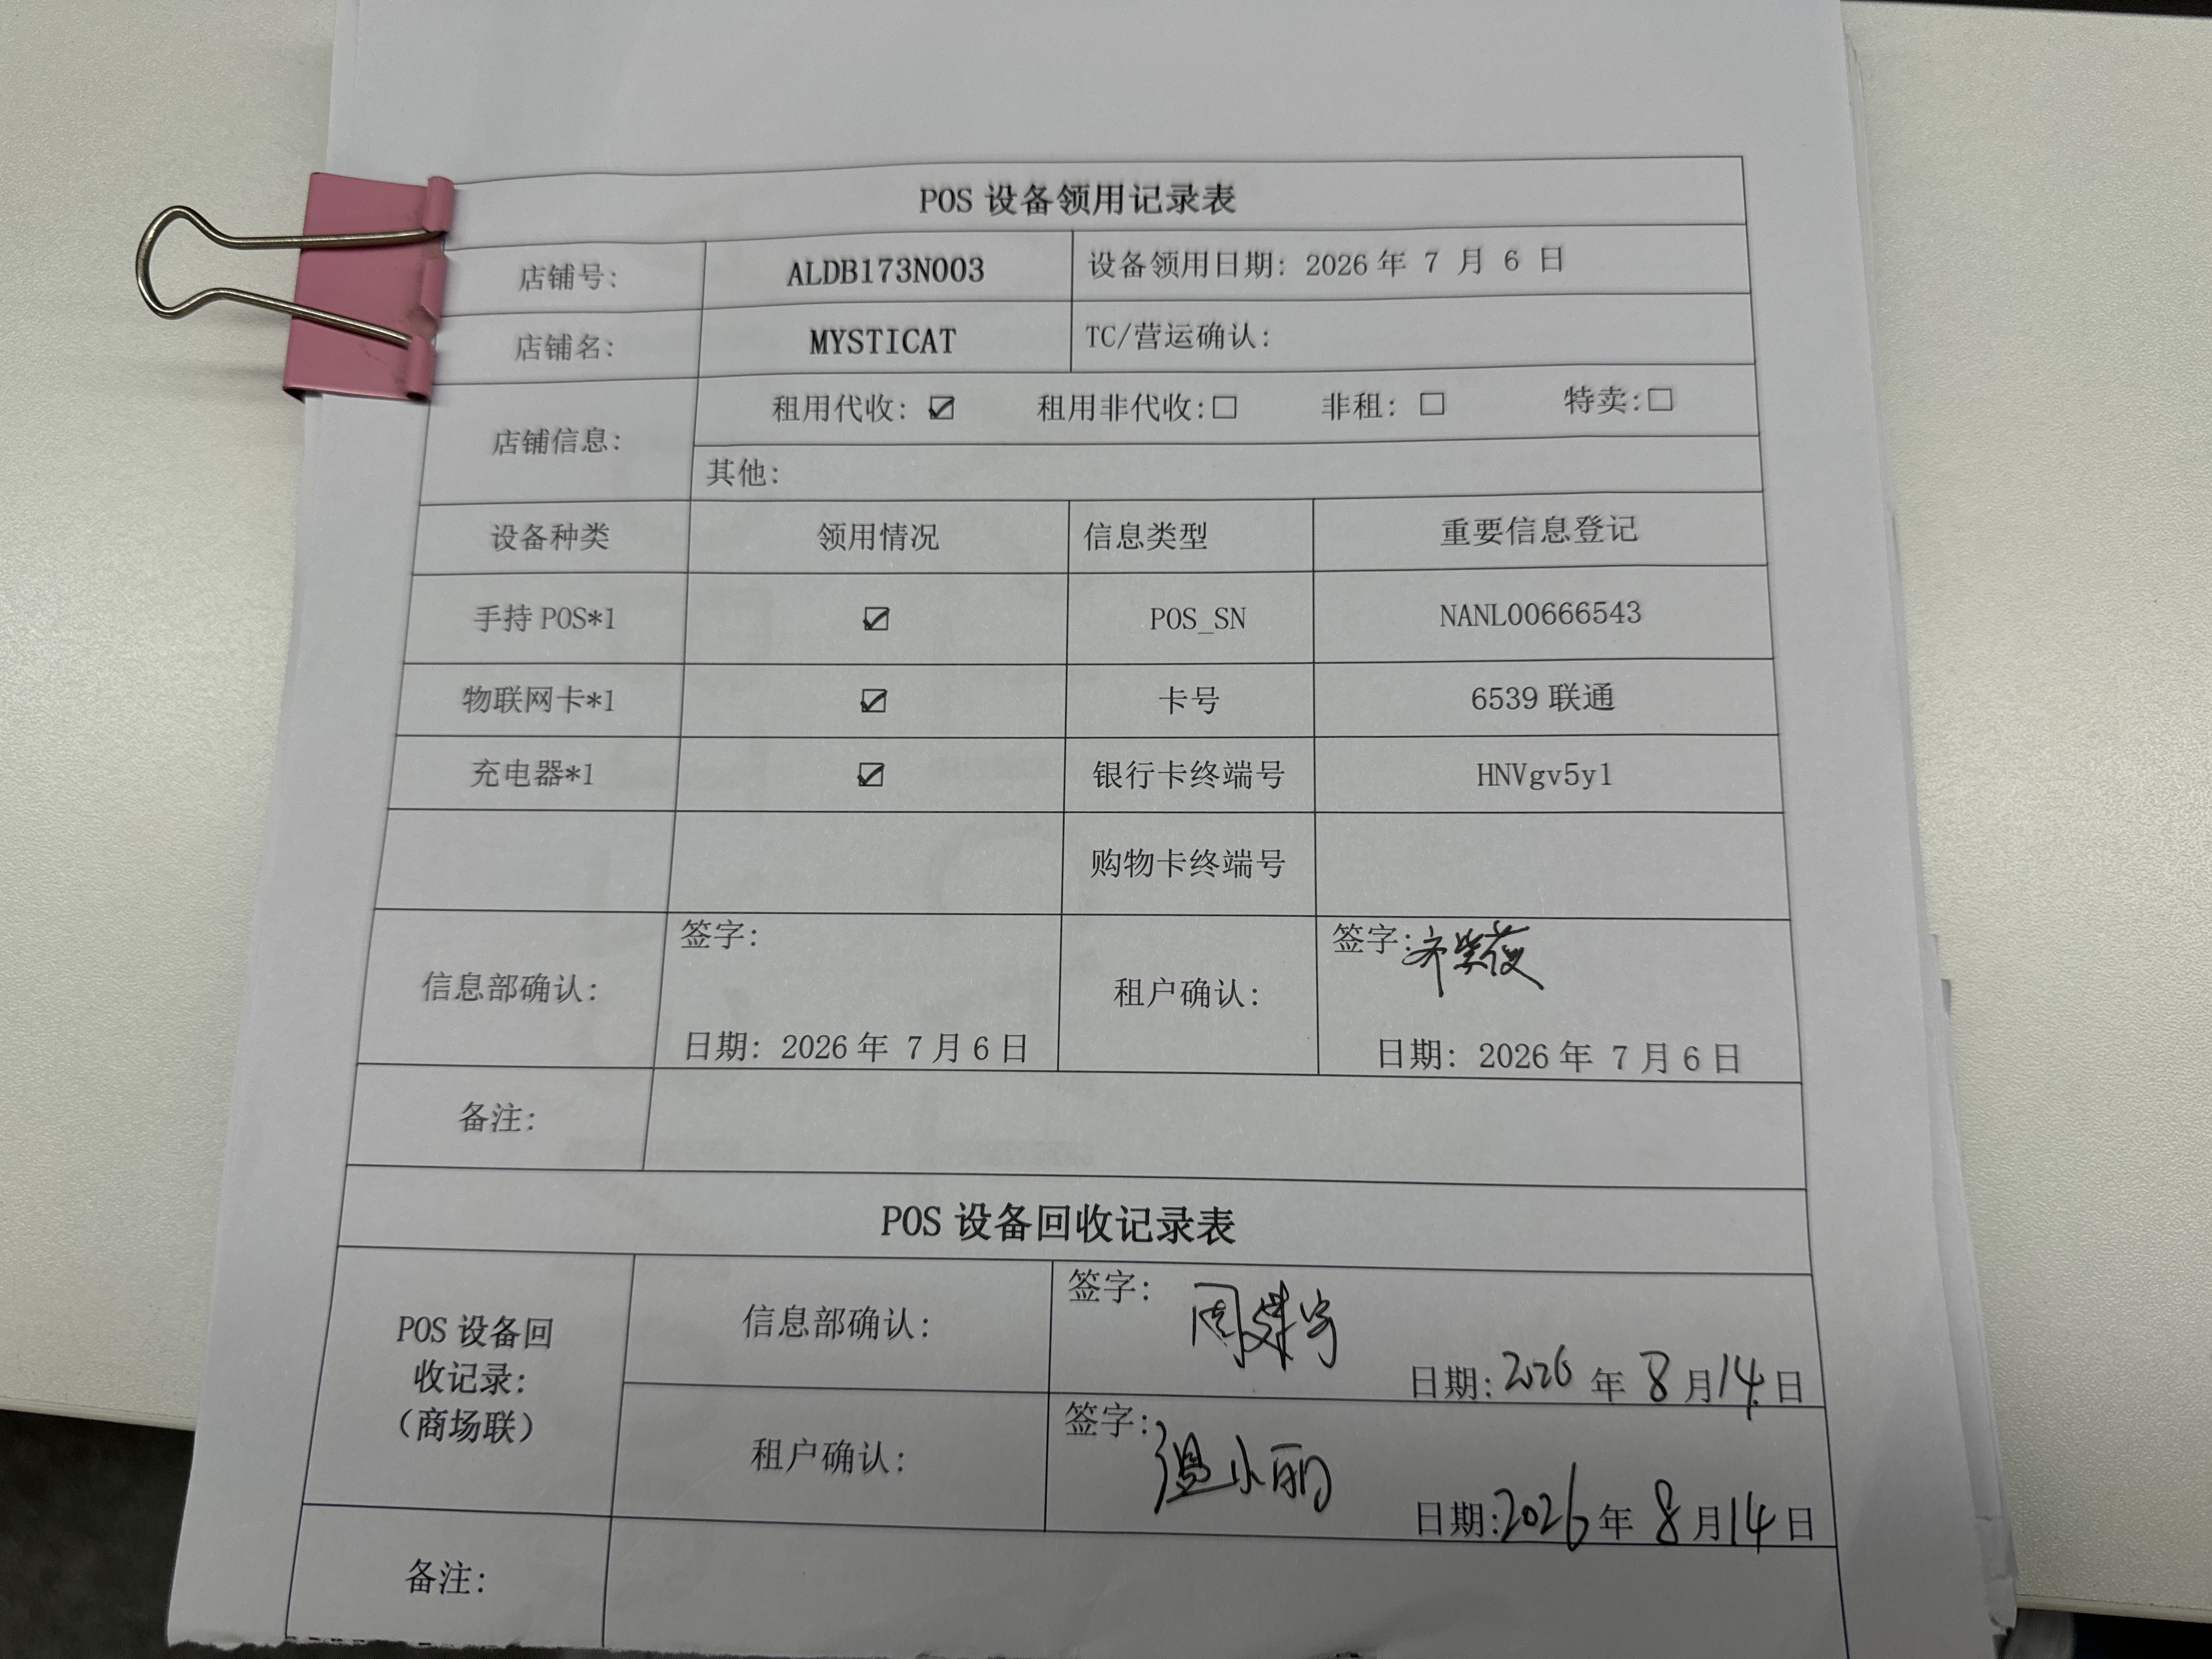 POS 设备领用记录表
店铺号: ALDB173N003 设备领用日期: 2026 年 7 月 6 日
店铺名: MYSTICAT TC/营运确认:
店铺信息: 租用代收: ☑ 租用非代收:☐ 非租: ☐ 特卖:☐
其他:
设备种类 领用情况 信息类型 重要信息登记
手持 POS*1 ☑ POS_SN NANL00666543
物联网卡*1 ☑ 卡号 6539 联通
充电器*1 ☑ 银行卡终端号 HNVgv5y1
购物卡终端号
信息部确认: 签字: 租户确认: 签字:
日期: 2026 年 7 月 6 日 日期: 2026 年 7 月 6 日
备注:
POS 设备回收记录表
POS 设备回
收记录:
(商场联)
信息部确认: 签字: 周
日期: 2026 年 8 月 14 日
租户确认: 签字: 温小丽
日期: 2026 年 8 月 14 日
备注: